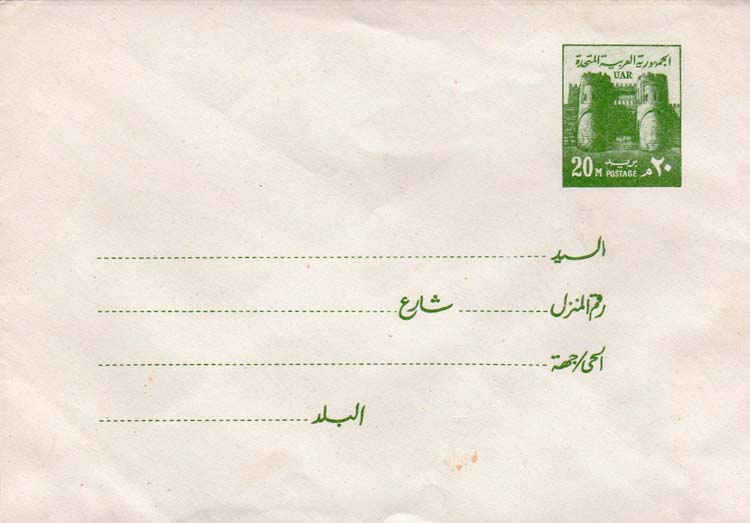 الجمهورية العربية المتحدة
UAR
بريد
20 M POSTAGE م ٢٠
السيد
رقم المنزل شارع
الحى/جهة
البلد